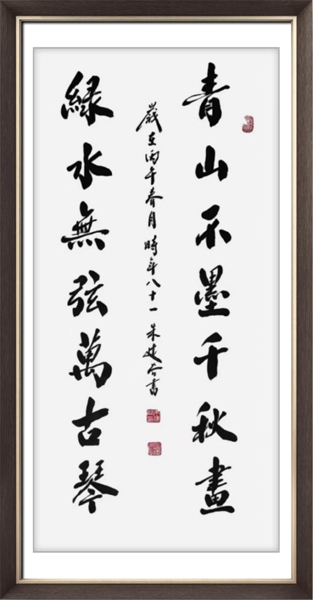 青山不墨千秋畫
綠水無弦萬古琴
歲在丙午春月時年八十一朱建谷書